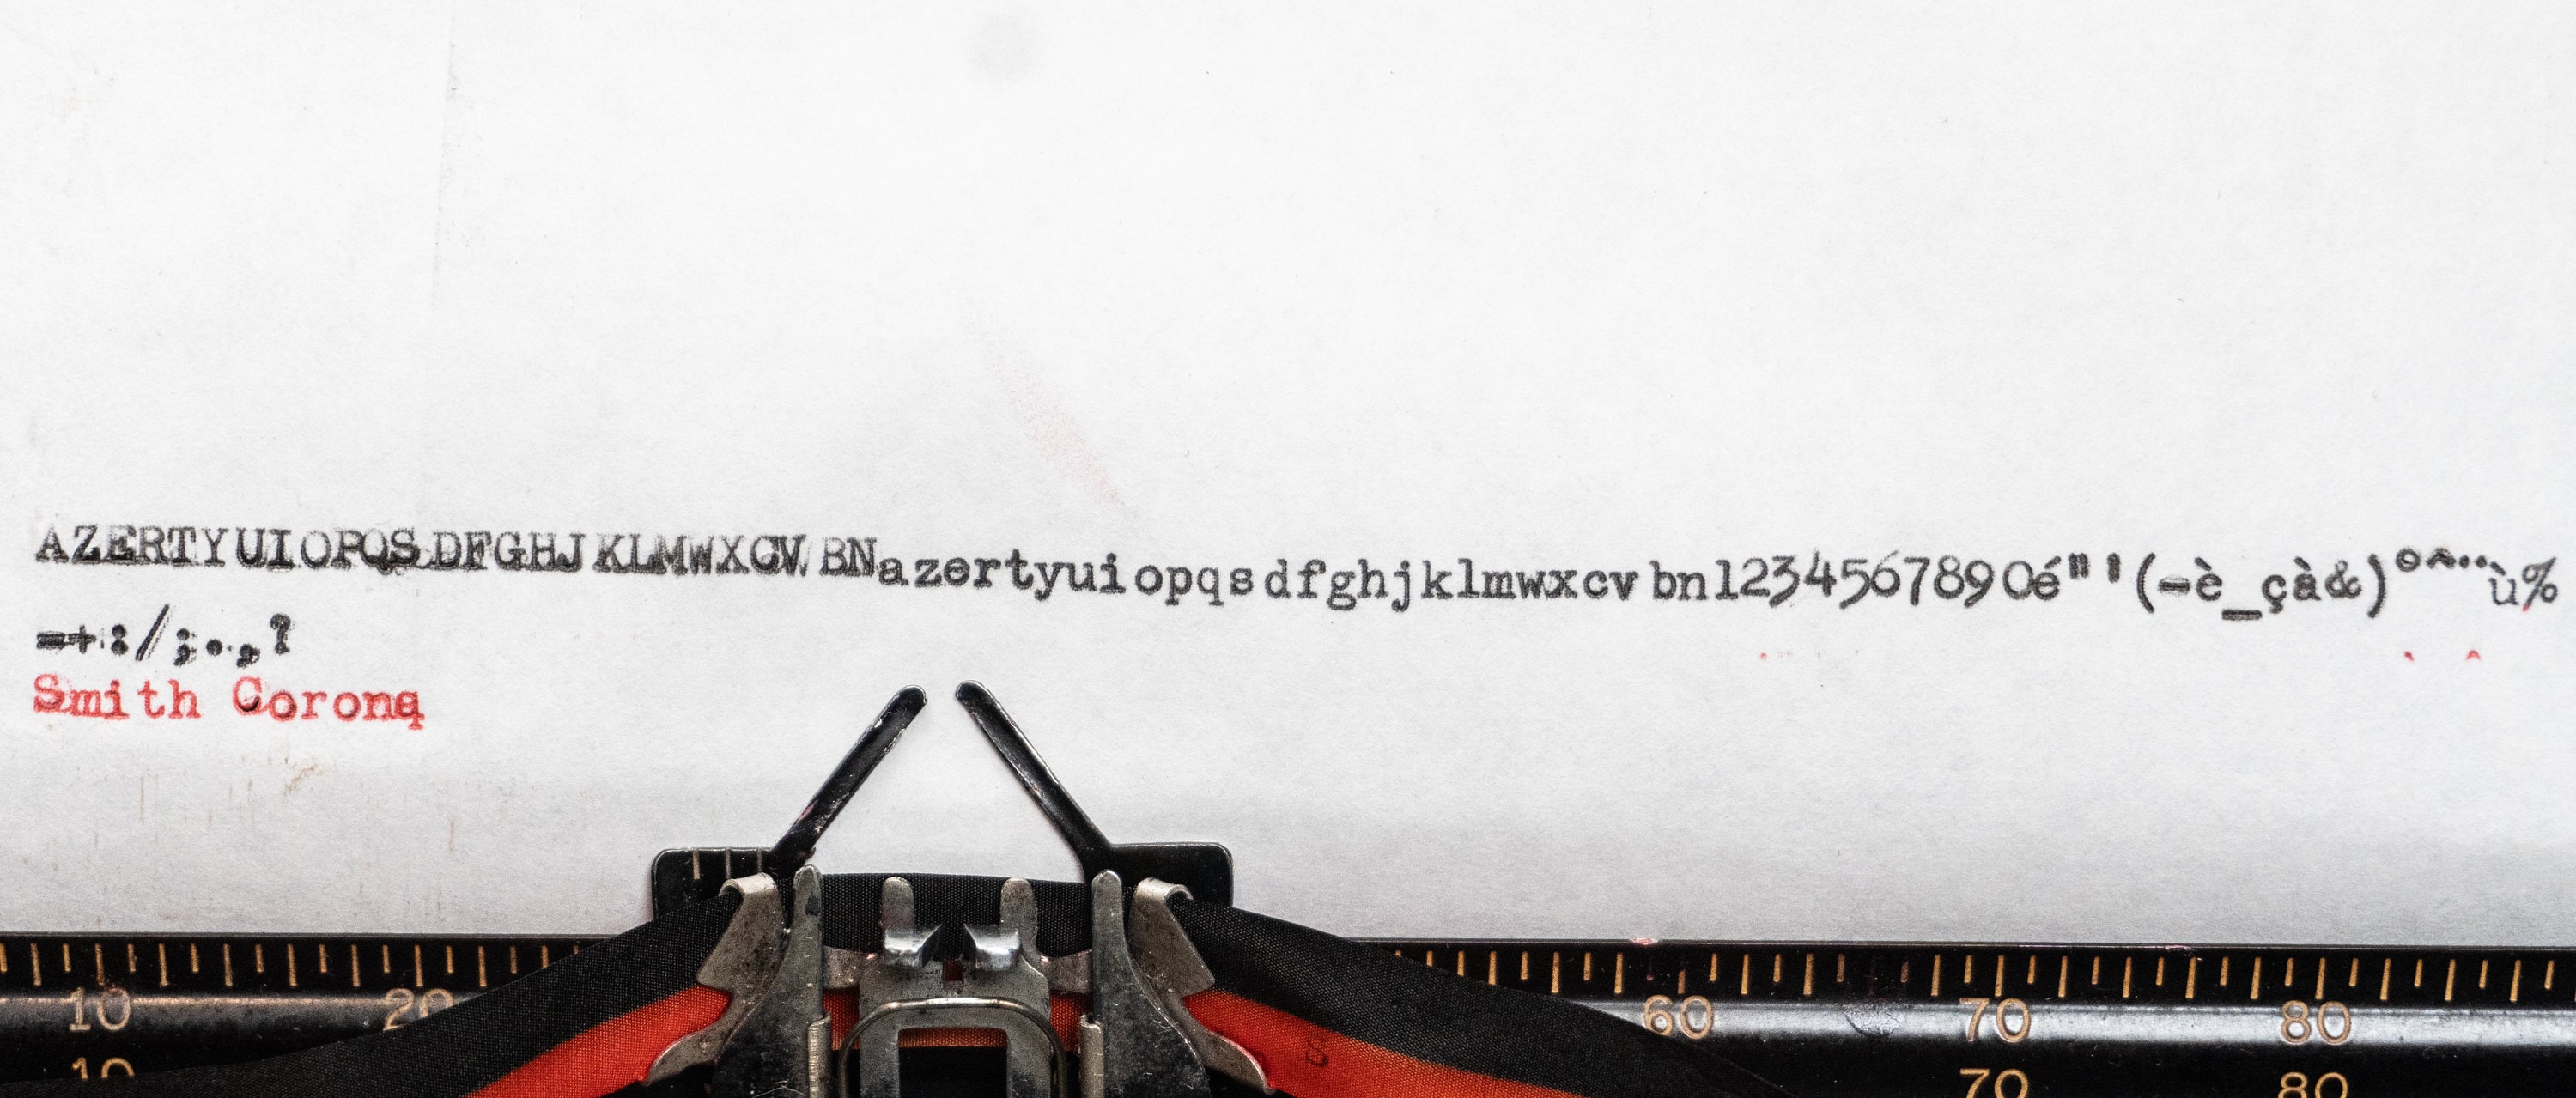 AZERTYUIOPQSDFGHJKLMWXCVBNazertyuiopqsdfghjklmwxcvbn1234567890é"'(-è_çà&)°^¨ù%
=+:/;.,?
Smith Corona
10 20 60 70 80
10 70 80